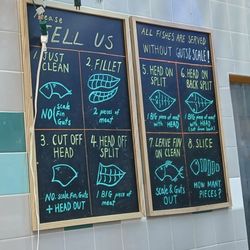 Please
TELL US
1. JUST
CLEAN
NO Scale
Fin Guts
2. FILLET
2 pieces of
meat
3. CUT OFF
HEAD
NO. Scale Fin, Guts
+ HEAD OUT
4. HEAD OFF
SPLIT
1 BIG piece of
meat
ALL FISHES ARE SERVED
WITHOUT GUTS & SCALE!
5. HEAD ON
SPLIT
1 BIG piece of meat
with HEAD
6. HEAD ON
BACK SPLIT
1 BIG piece of meat
with HEAD
7. LEAVE FIN
ON CLEAN
SCALE & GUTS
OUT
8. SLICE
HOW MANY
PIECES?